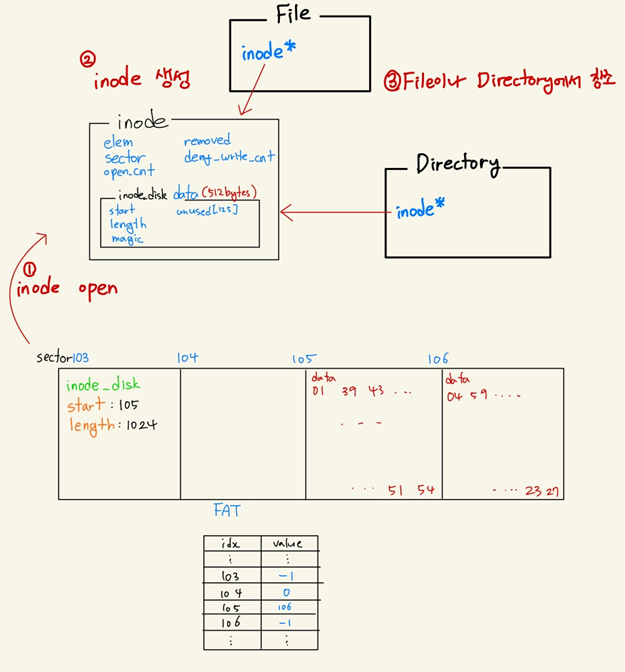 File
inode*
②
inode 생성
③ File이나 Directory에서 참조
inode
elem removed
sector deny_write_cnt
open_cnt
inode_disk data (512bytes)
start unused[125]
length
magic
Directory
inode*
①
inode open
sector103 104 105 106
inode_disk
start : 105
length : 1024
data
01 39 43 ...
. - -
... 51 54
data
04 59 ....
. ... 23 27
FAT
idx value
⋮ ⋮
103 -1
104 0
105 106
106 -1
⋮ ⋮